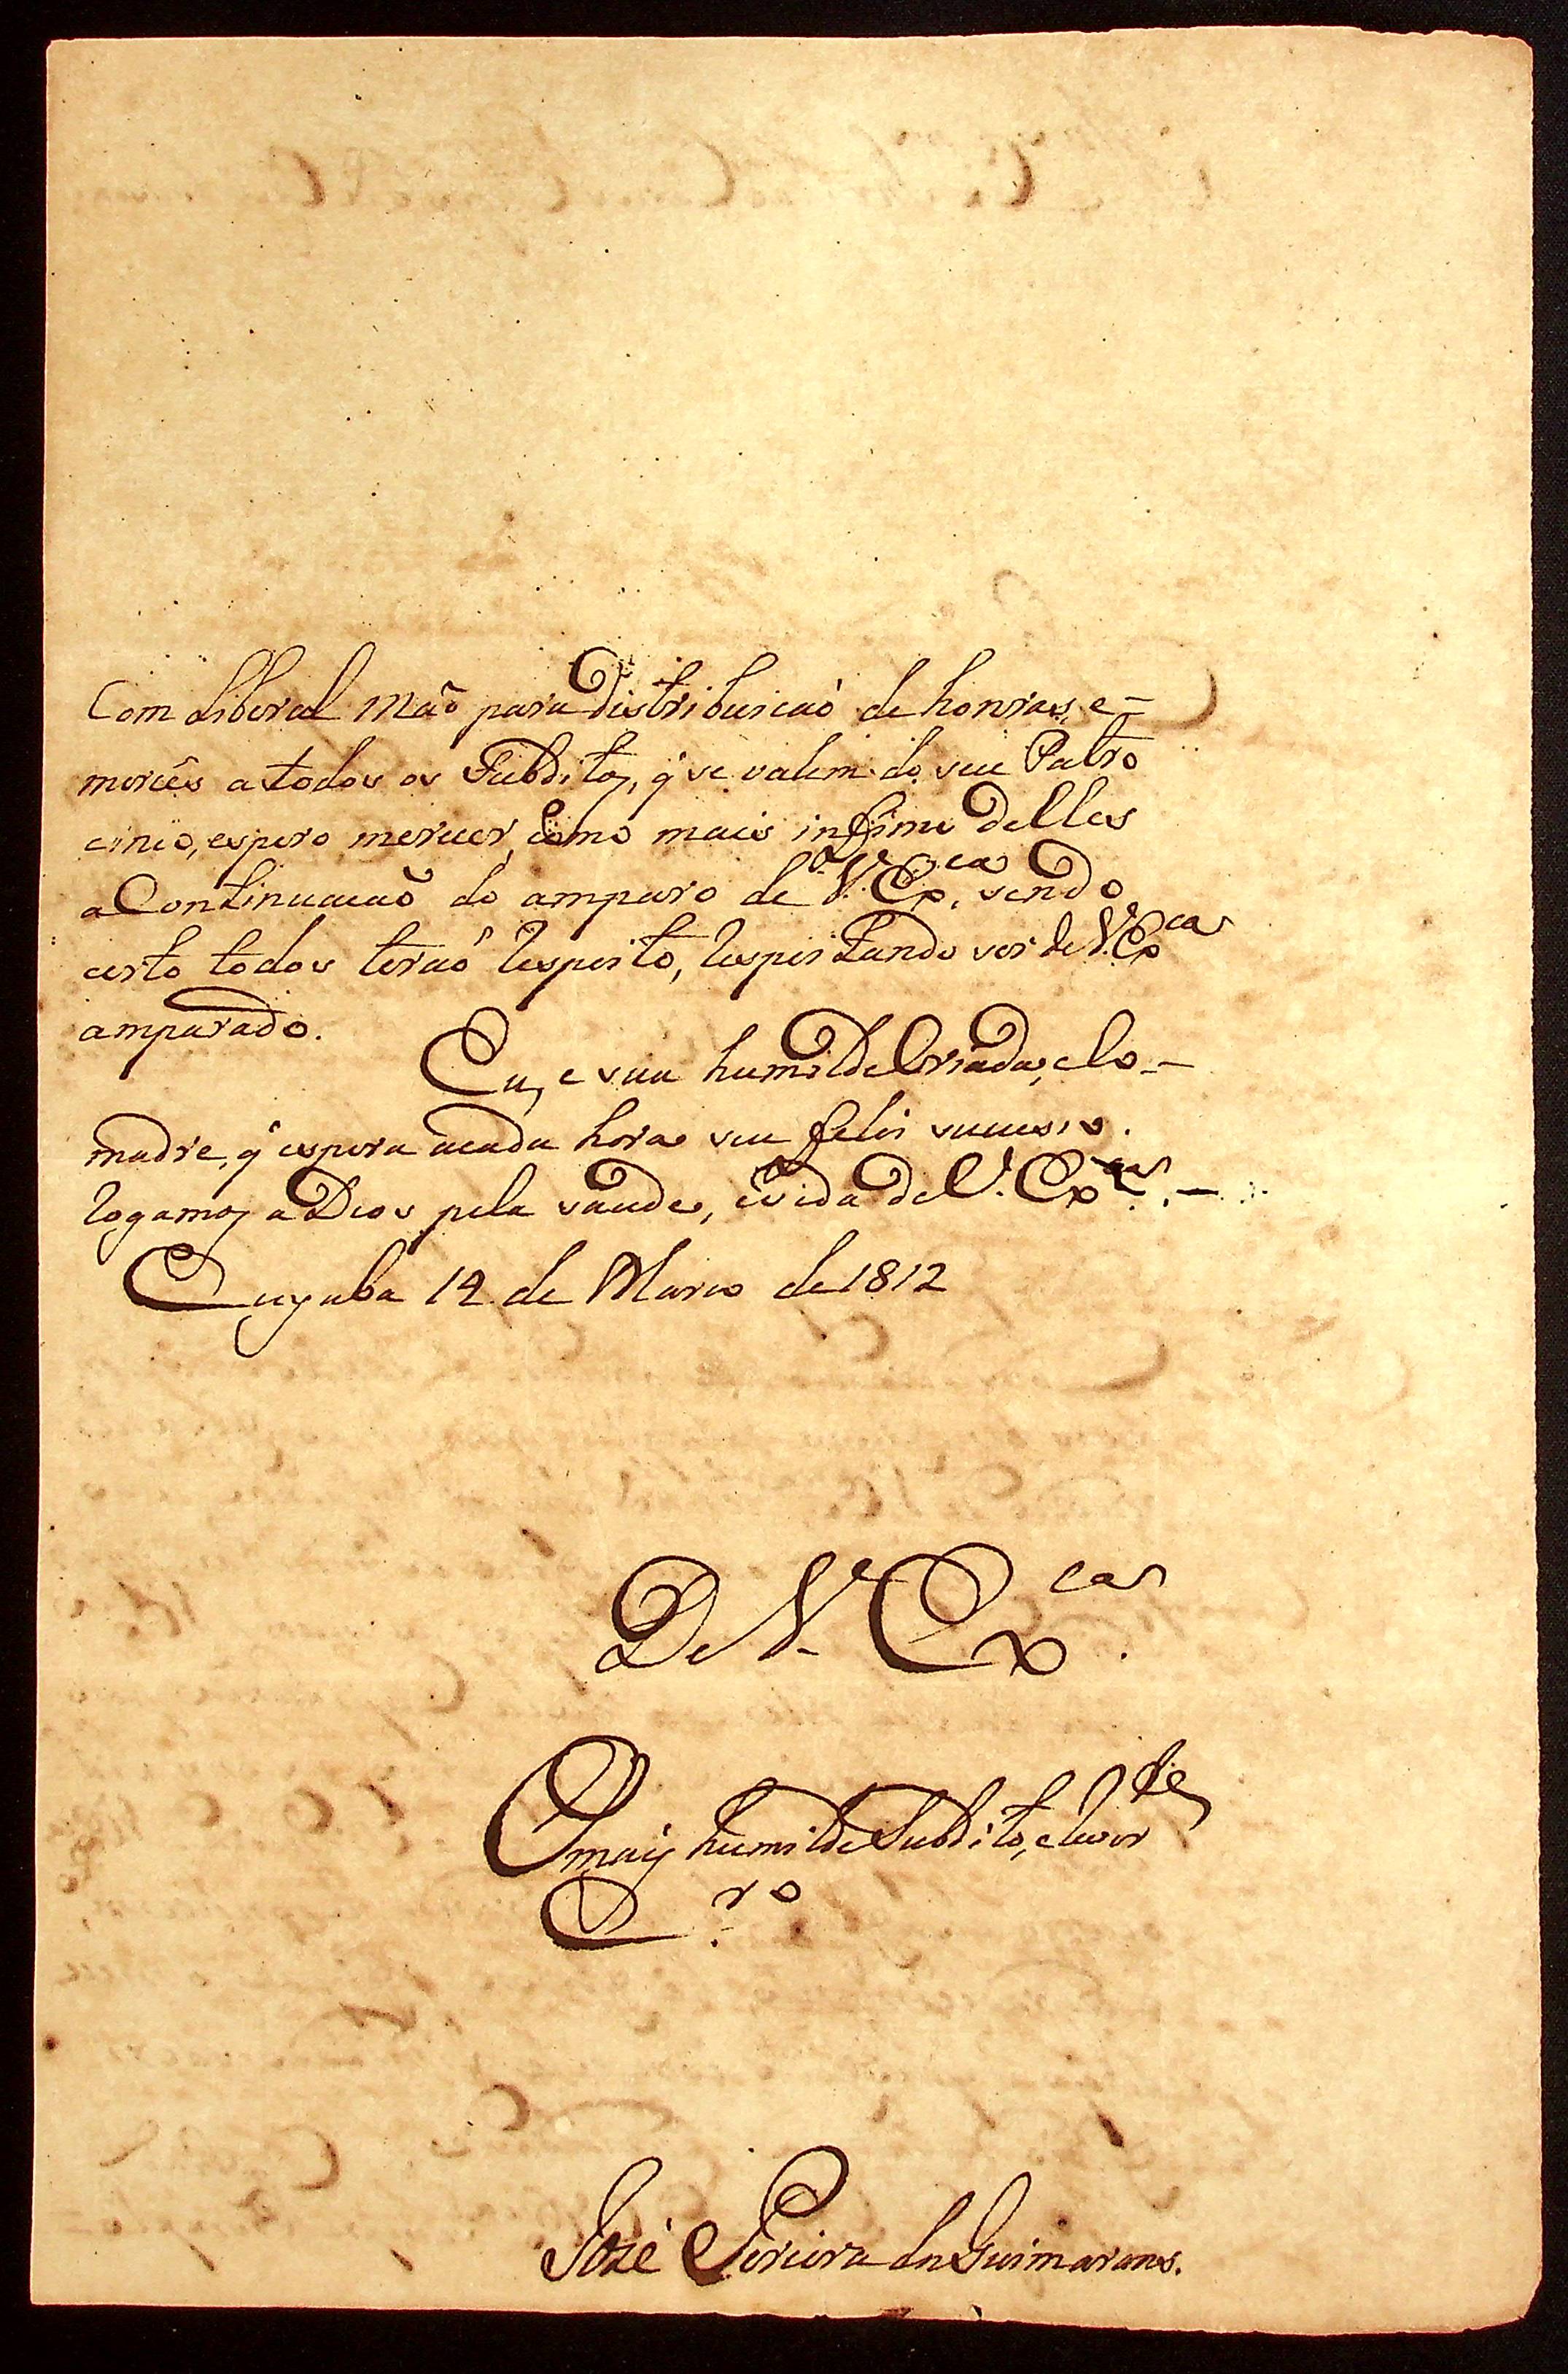 Com Liberal Maõ para Distribuicaõ de honras, e-
mercês a todos os Subditos, q̃ se valem do seu Patro
cinio, espero merecer, como mais infimo delles
a Continuacaõ do amparo de V. Ex.cas sendo
certo todos teraõ respeito, respeitando ser de V. Excas
amparado.
Eu, e sua humilde Criada, e Co-
madre, q̃ espera acada hora seu felis sucesso.
rogamos a Deos pela saude, e vida de V. Excas. -
Cuyaba 14 de Marco de 1812
De V. Excas.
O mais humilde Subdito, e
Cr.o
José Pereira dn Guimaraens.